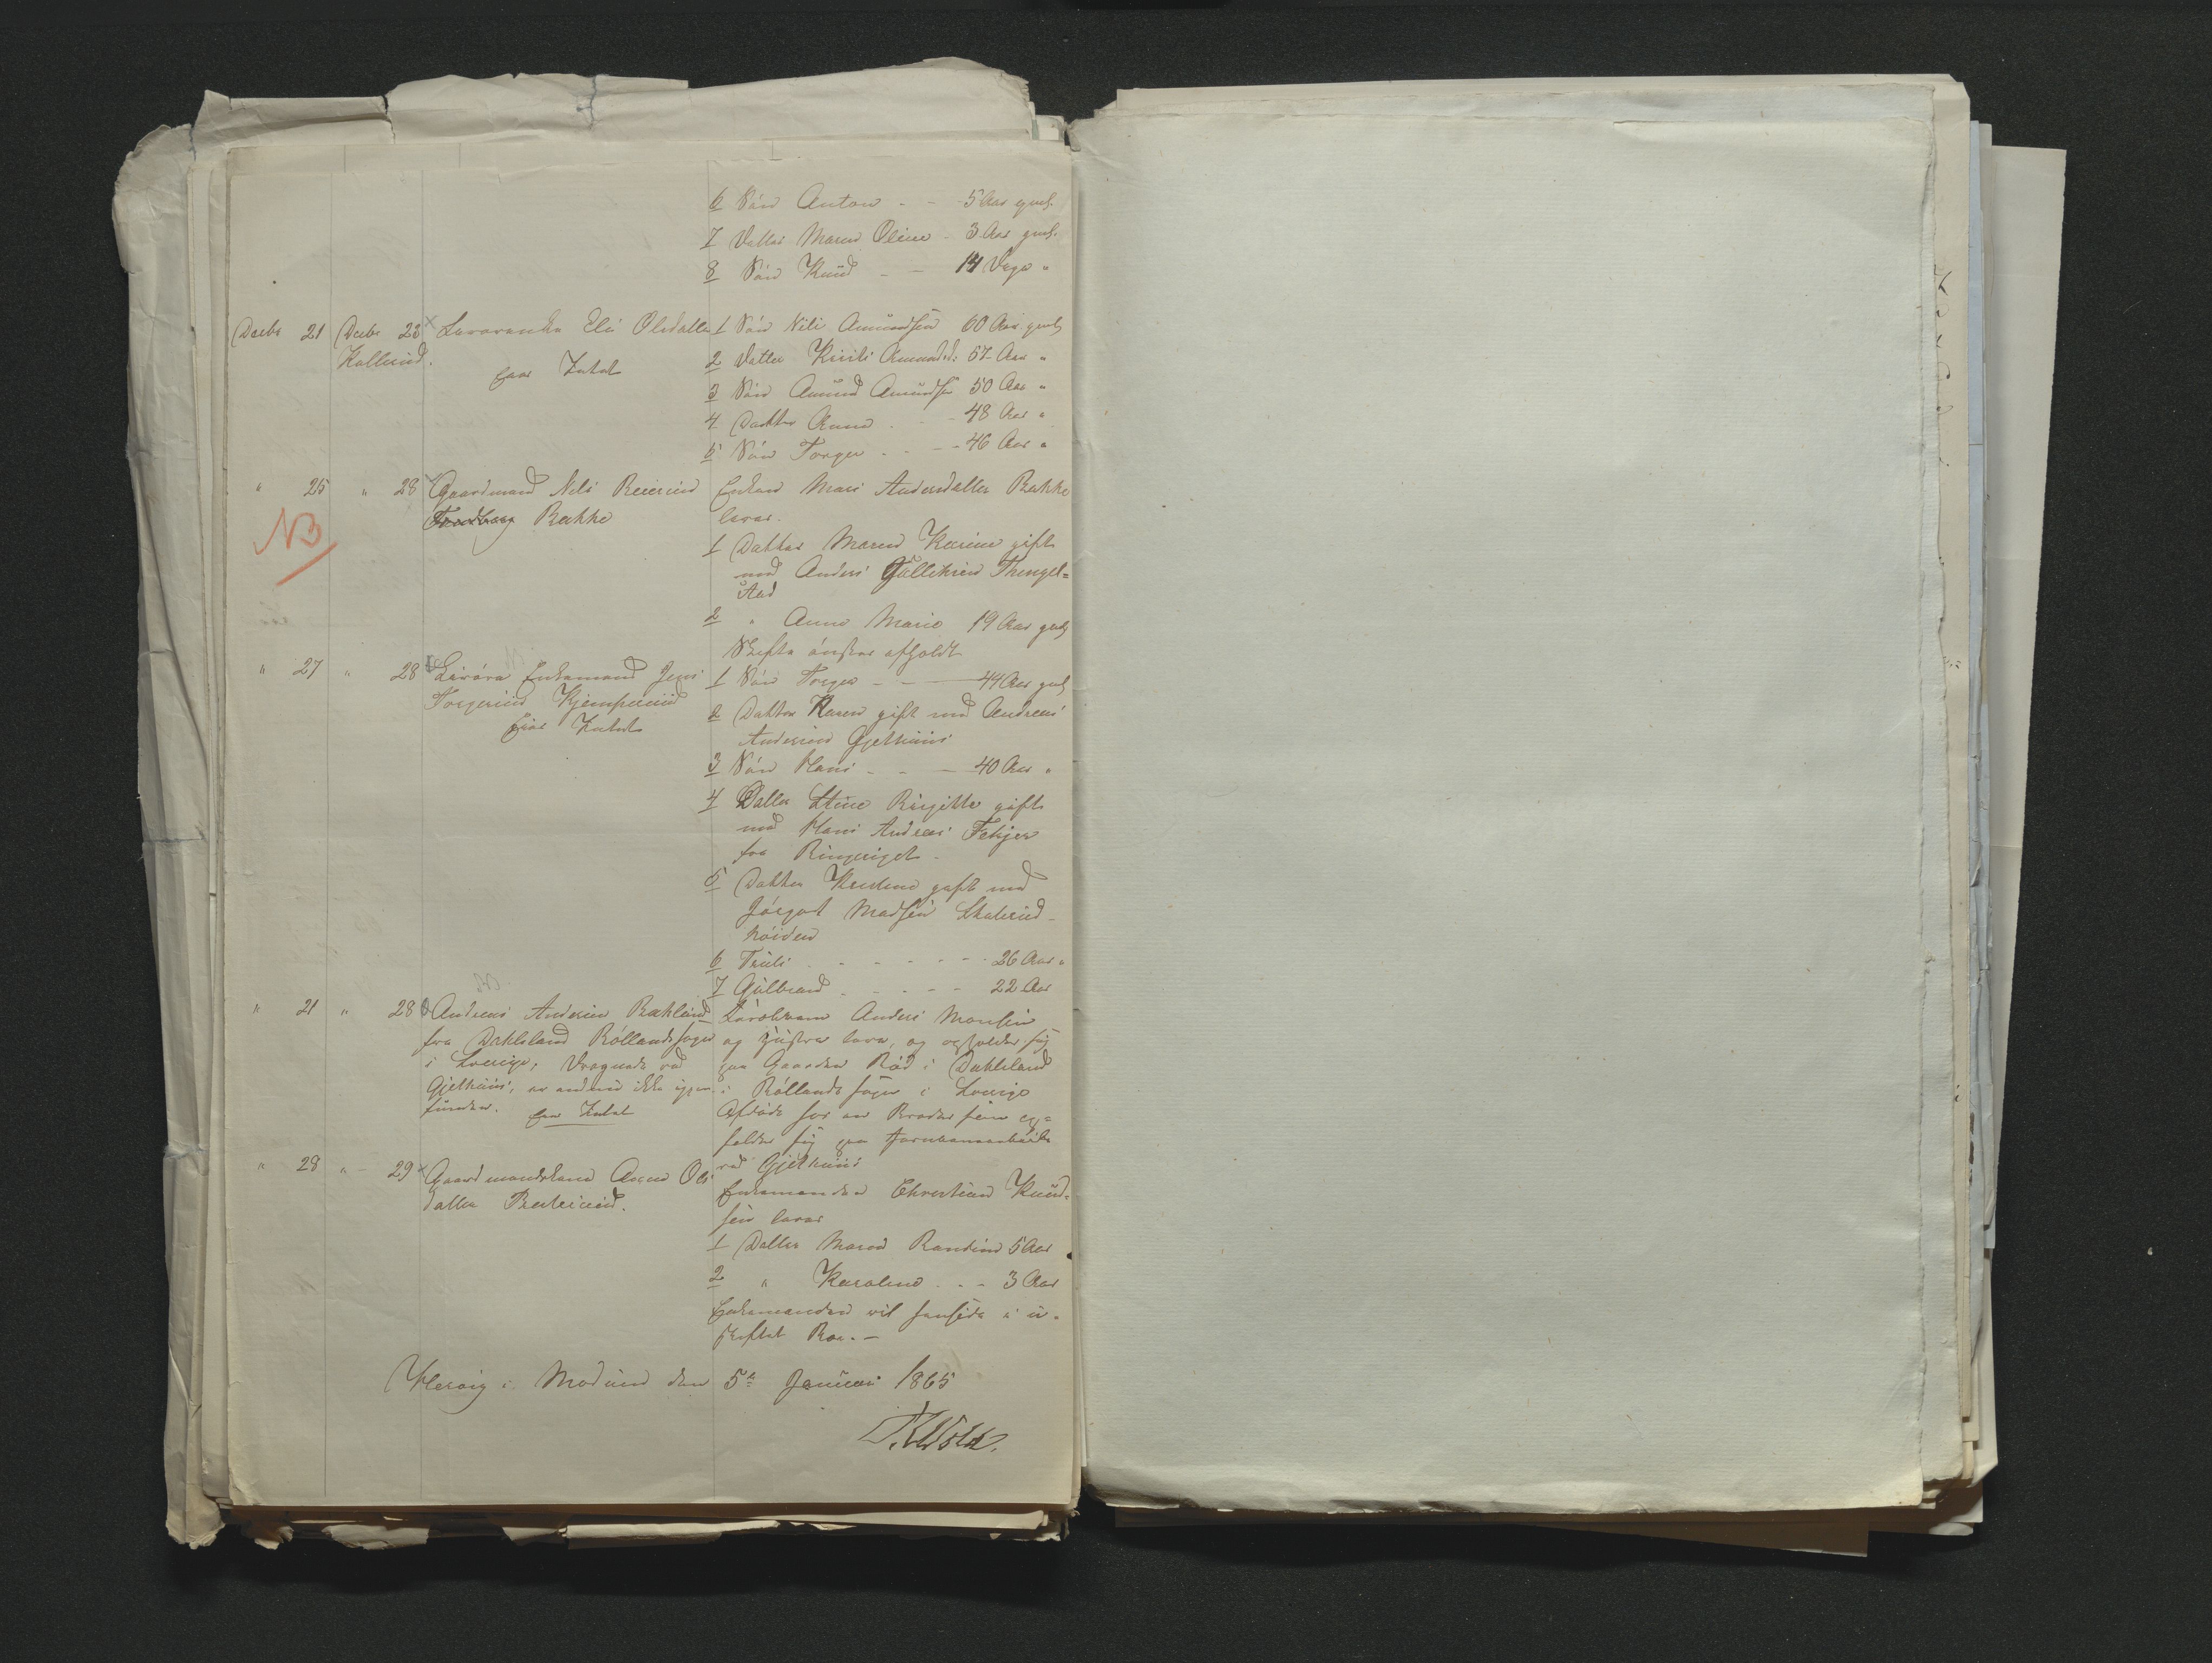 6 Søn Anton - - 5 Aar gml.
7 Datter Maren Oline - 3 Aar gml.
8 Søn Knud - - 14 Dage "
Decbr 21 Decbr 23 Eli Olsdatter
Kollerud.
har Intet
1 Søn Nils Amundsen 60 Aar gml
2 Datter Amundsd: 57 Aar "
3 Søn Amund Amundsen 50 Aar "
4 Datter Anne - 48 Aar "
5 Søn Torger - - - 46 Aar "
" 25 " 28 Gaardmand Nils Reiersen
Bakke
NB
Enken Mari Andersdatter Bakke
lever.
1 Datter Maren Karine gift
med Anders Gulliksen Thingel=
stad
2 " Anne Marie 19 Aar gml
Skifte ønskes afholdt
" 27 " 28 Enkemand Jens
Torgersen Kjemperud
Eier Intet
1 Søn Torger - - 44 Aar gml
2 Datter Karen gift med Andreas
Andersen Gjethuus
3 Søn Hans - - - 40 Aar "
4 Datter Stine Birgitte gift
med Hans Andreas Fekjer
fra Ringeriget -
5 Datter Kristine gift med
Jørgen Madsen Skalerud-
6 Truls - - - - - - 26 Aar "
7 Gulbrand - - - - 22 Aar
" 21 " 28 Andreas Andersen Baklund
fra Dahlsland Røllandssogn
i Sverige, Druknede ved
Gjethuus, er endnu ikke igjen
funden. har Intet
Forældrene Anders Monsen
og Hustru lever, og opholder sig
paa Gaarden Rød i Dahlsland
i Røllands sogn i Sverige
Afdøde har en Broder som op=
holder sig paa Jernbanearbeide
ved Gjethuus
" 28 " - 29 Gaardmandskone Anne Ols
datter
Enkemanden Christian Knud=
sen lever
1 Datter Maren 5 Aar
2 " Karoline - - 3 Aar
Enkemanden vil hensidde i u-
skiftet Boe. -
Hervig i Modum den 5te Januar 1865